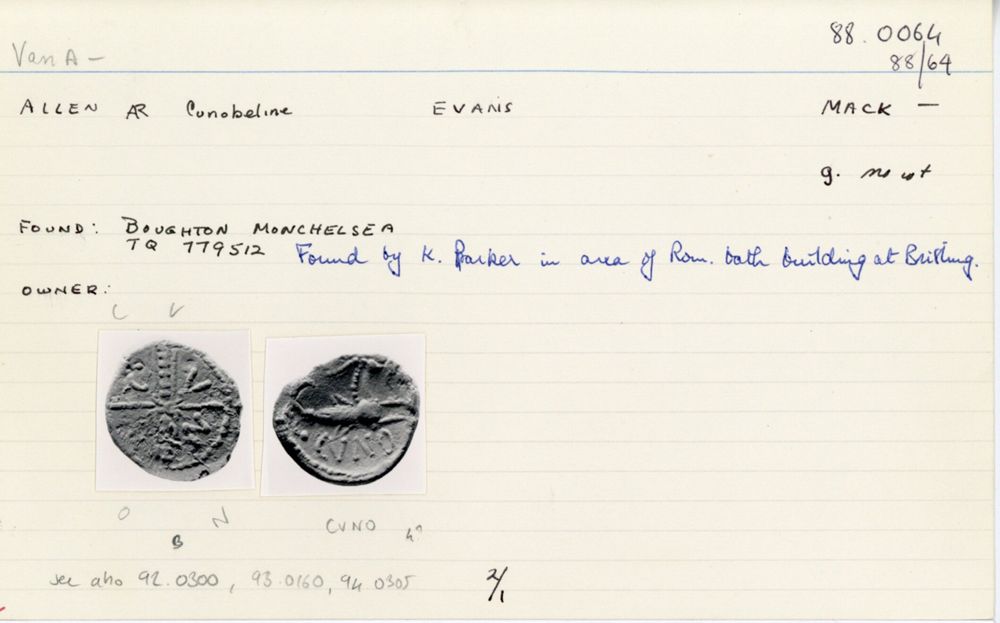 88.0064
Van A – 88/64
ALLEN AR Cunobeline EVANS MACK –
g. no wt
FOUND: BOUGHTON MONCHELSEA
TQ 779512 Found by K. Parker in area of Rom. bath building at Brishing.
OWNER:
C V
CVNO
O N CVNO
B
see also 92.0300, 93.0160, 94.0305 2/1